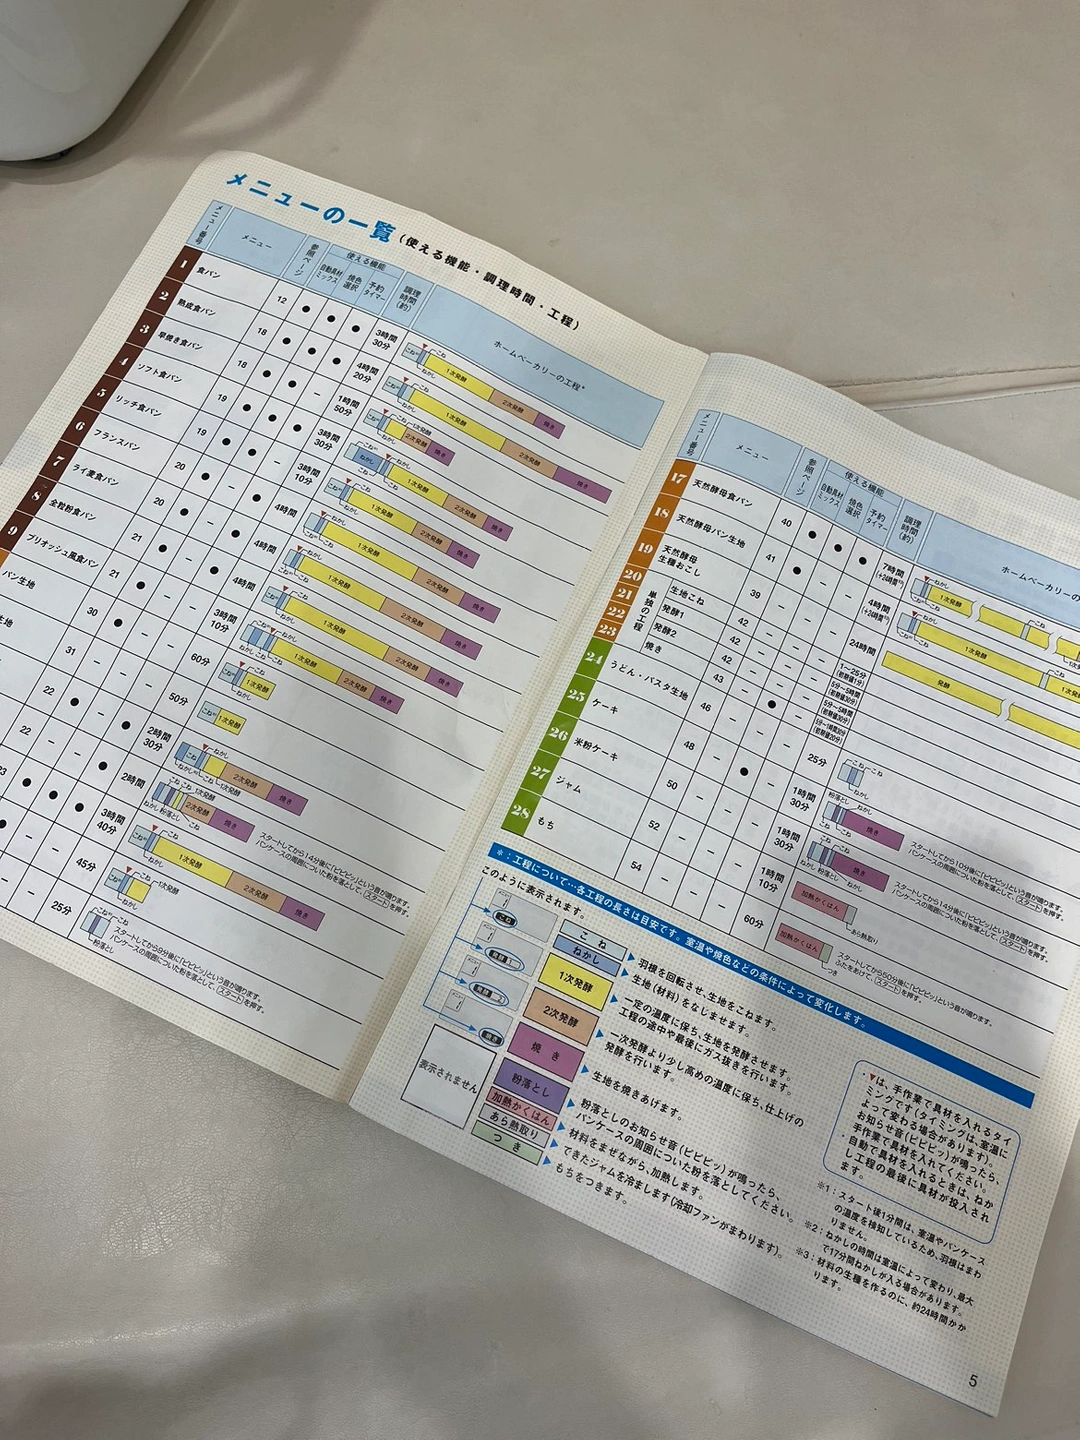 メニューの一覧(使える機能・調理時間・工程)
メニュー番号 メニュー 参照ページ 使える機能 調理時間(約) ホームベーカリーの工程*
自動具材ミックス 焼色選択 予約タイマー
1 食パン 12 ● ● ● 3時間30分
こね こね 1次発酵 2次発酵 焼き
2 熟成食パン 18 ● ● ● 4時間20分
こね こね 1次発酵 2次発酵 焼き
3 早焼き食パン 18 ● ● － 1時間50分
こね こね 1次発酵 2次発酵 焼き
4 ソフト食パン 19 ● ● ● 3時間30分
ねかし こね 1次発酵 2次発酵 焼き
5 リッチ食パン 19 ● ● － 3時間10分
1次発酵 2次発酵 焼き
6 フランスパン 20 ● － ● 4時間
ねかし 1次発酵 2次発酵 焼き
7 ライ麦食パン 20 ● － ● 4時間
ねかし 1次発酵 2次発酵 焼き
8 全粒粉食パン 21 ● － ● 4時間
ねかし 1次発酵 2次発酵 焼き
9 ブリオッシュ風食パン 21 ● － － 3時間10分
ねかし 1次発酵 2次発酵 焼き
パン生地 30 ● － － 60分
こね ねかし 1次発酵
生地 31 － － － 50分
こね 1次発酵
22 ● － ● 2時間30分
こね ねかし 1次発酵 2次発酵 焼き
22 － ● － 2時間
こね こね 1次発酵 2次発酵 焼き
ねかし 粉落とし こね
スタートしてから14分後に「ピピピッ」という音が鳴ります。
パンケースの周囲についた粉を落として、スタートを押す。
23 ● ● ● 3時間40分
こね こね ねかし 1次発酵 2次発酵 焼き
● － － 45分
こね ねかし 1次発酵
－ － 25分
こね こね 粉落とし
スタートしてから8分後に「ピピピッ」という音が鳴ります。
パンケースの周囲についた粉を落として、スタートを押す。
メニュー番号 メニュー 参照ページ 使える機能 調理時間(約) ホームベーカリーの
自動具材ミックス 焼色選択 予約タイマー
17 天然酵母食パン 40 ● ● ● 7時間(+24時間※3)
ねかし こね 1次発酵
18 天然酵母パン生地 41 ● － － 4時間(+24時間※3)
ねかし こね 1次発酵
19 天然酵母生種おこし 39 － － － 24時間
発酵
単独の工程
20 生地こね 42 － － － 1～25分(初期値1分)
21 発酵1 42 － － － 5分～5時間(初期値30分)
22 発酵2 42 － － － 5分～5時間(初期値30分)
23 焼き 43 － ● － 5分～1時間30分(初期値20分)
24 うどん・パスタ生地 46 － － － 25分
こね こね ねかし
25 ケーキ 48 － ● － 1時間30分
粉落とし こね 焼き
スタートしてから10分後に「ピピピッ」という音が鳴ります。
パンケースの周囲についた粉を落として、スタートを押す。
26 米粉ケーキ 50 － － － 1時間30分
こね こね 焼き
粉落とし ねかし
スタートしてから14分後に「ピピピッ」という音が鳴ります。
パンケースの周囲についた粉を落として、スタートを押す。
27 ジャム 52 － － － 1時間10分
加熱かくはん あら熱取り
28 もち 54 － － － 60分
加熱かくはん つき
スタートしてから50分後に「ピピピッ」という音が鳴ります。
ふたをあけて、スタートを押す。
＊：工程について…各工程の長さは目安です。室温や焼色などの条件によって変化します。
このように表示されます。
こね
発酵
発酵
焼き
表示されません
こね ▶ 羽根を回転させ、生地をこねます。
ねかし ▶ 生地(材料)をなじませます。
1次発酵 ▶ 一定の温度に保ち、生地を発酵させます。
工程の途中や最後にガス抜きを行います。
2次発酵 ▶ 一次発酵より少し高めの温度に保ち、仕上げの
発酵を行います。
焼き ▶ 生地を焼きあげます。
粉落とし ▶ 粉落としのお知らせ音(ピピピッ)が鳴ったら、
パンケースの周囲についた粉を落としてください。
加熱かくはん ▶ 材料をまぜながら、加熱します。
あら熱取り ▶ できたジャムを冷まします(冷却ファンがまわります)。
つき ▶ もちをつきます。
・▼は、手作業で具材を入れるタイ
ミングです(タイミングは、室温に
よって変わる場合があります)。
お知らせ音(ピピピッ)が鳴ったら、
手作業で具材を入れてください。
・自動で具材を入れるときは、ねか
し工程の最後に具材が投入され
ます。
※1：スタート後1分間は、室温やパンケース
の温度を検知しているため、羽根はまわ
りません。
※2：ねかしの時間は室温によって変わり、最大
で17分間ねかしが入る場合があります。
※3：材料の生種を作るのに、約24時間かか
ります。
5